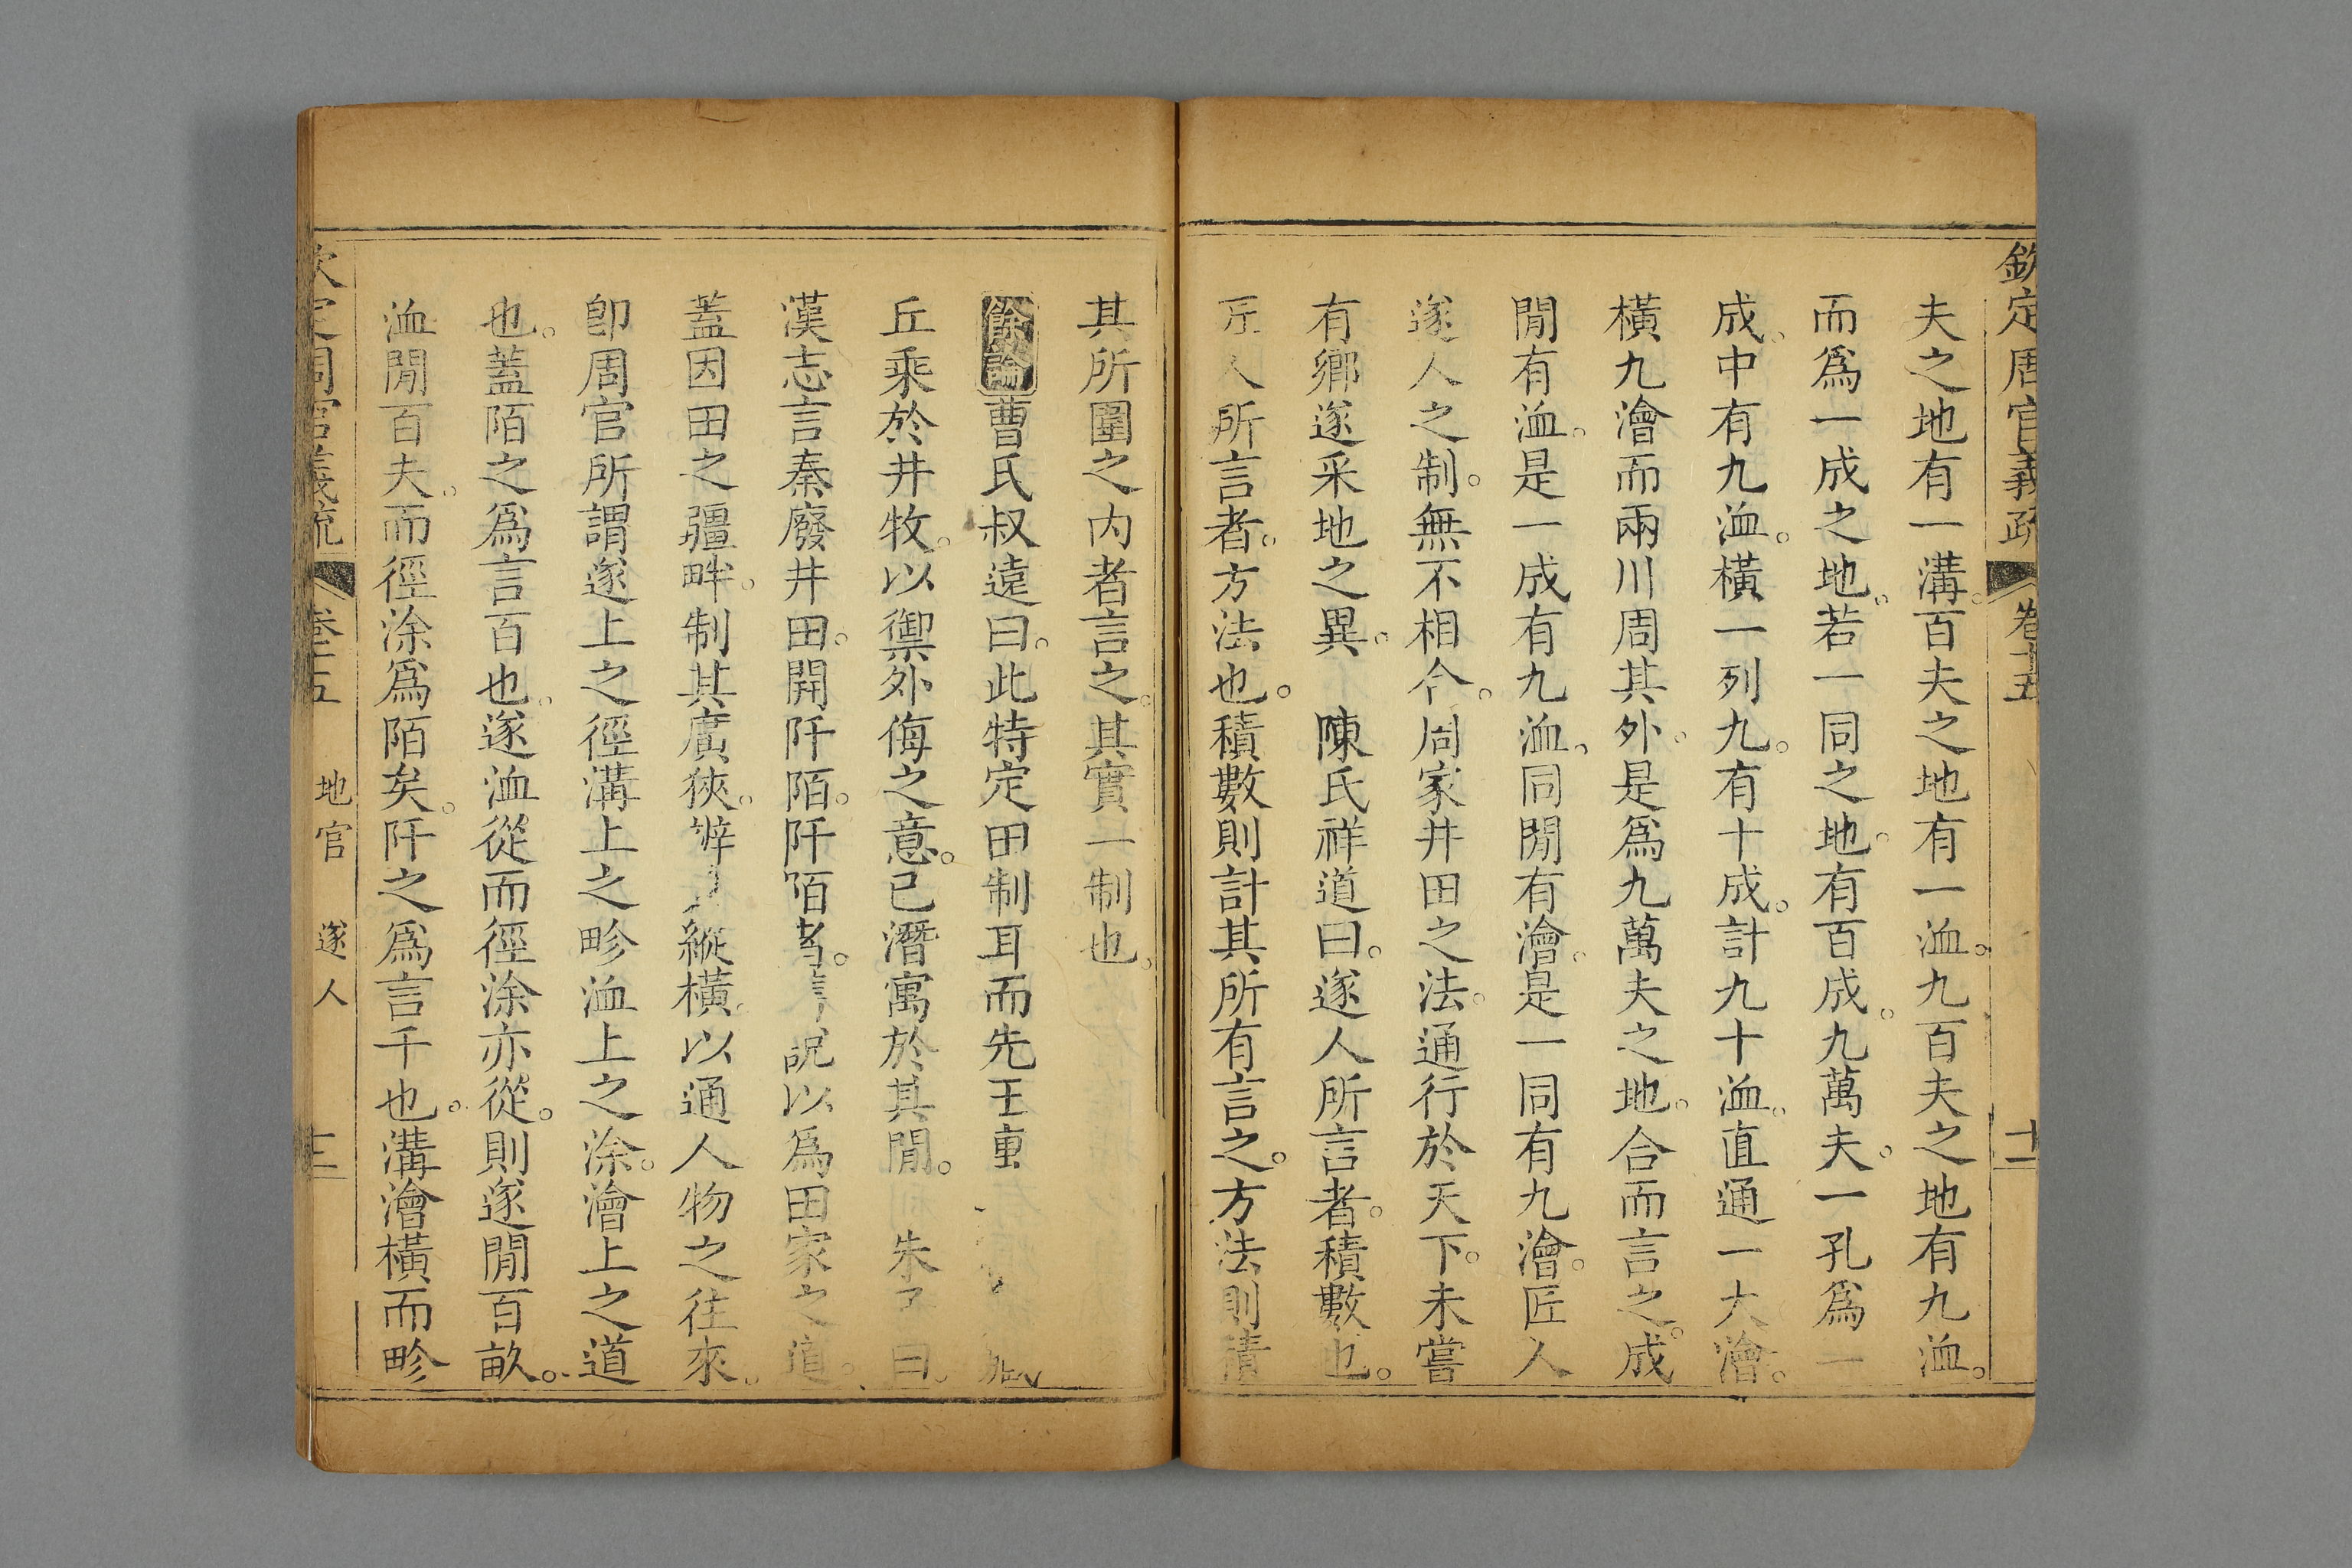 欽定周官義疏 卷十五 十二
夫之地有一溝。百夫之地有一洫。九百夫之地有九洫。
而爲一成之地。若一同之地。有百成。九萬夫。一孔爲一
成。中有九洫。橫一列九。有十成。計九十洫。直通一大澮。
橫九澮而兩川周其外。是爲九萬夫之地。合而言之。成
閒有洫。是一成有九洫。同閒有澮。是一同有九澮。匠人
遂人之制。無不相合。周家井田之法。通行於天下。未嘗
有鄉遂采地之異。 陳氏祥道曰。遂人所言者。積數也。
匠人所言者。方法也。積數則計其所有言之。方法則積
其所圍之內者言之。其實一制也。
餘論曹氏叔遠曰。此特定田制耳而先王
丘乘於井牧。以禦外侮之意。已潛寓於其閒。 朱子曰。
漢志言秦廢井田。開阡陌。阡陌者。 說以爲田家之道。
蓋因田之疆畔。制其廣狹。辨 縱橫。以通人物之往來。
卽周官所謂遂上之徑溝上之畛洫上之涂。澮上之道
也。蓋陌之爲言百也。遂洫從而徑涂亦從。則遂閒百畝。
洫閒百夫。而徑涂爲陌矣。阡之爲言千也。溝澮橫而畛
欽定周官義疏 卷十五 地官 遂人